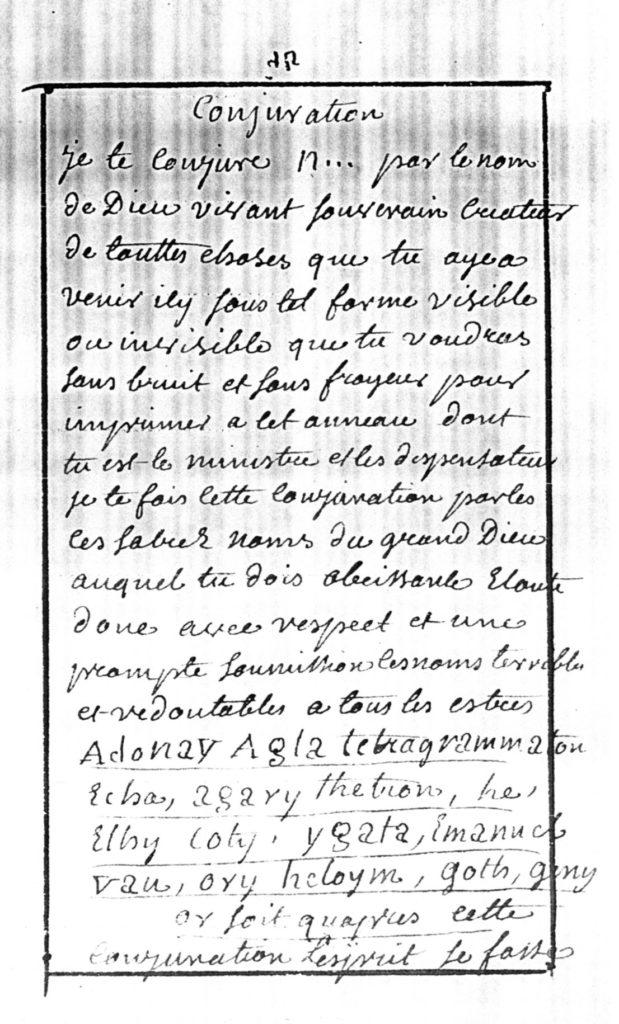 Conjuration
je te conjure n... par le nom
de Dieu vivant souverain Createur
de touttes choses que tu aye a
venir icy sous tel forme visible
ou invisible que tu voudras
sans bruit et sans frayeur pour
imprimer a cet anneau dont
tu est le ministre et les dispensateur
je te fais cette conjuration par les
ces sacrez noms du grand Dieu
auquel tu dois obeissance Ecoute
donc avec respect et une
prompte soumission les noms terribles
et redoutables a tous les estres
Adonay Agla tetragrammaton
Echa, agary thetron, he,
Elhy Coty, ygata, Emanuel
vau, ory heloym, goth, geny
or soit quapres cette
conjuration L'esprit se fasse